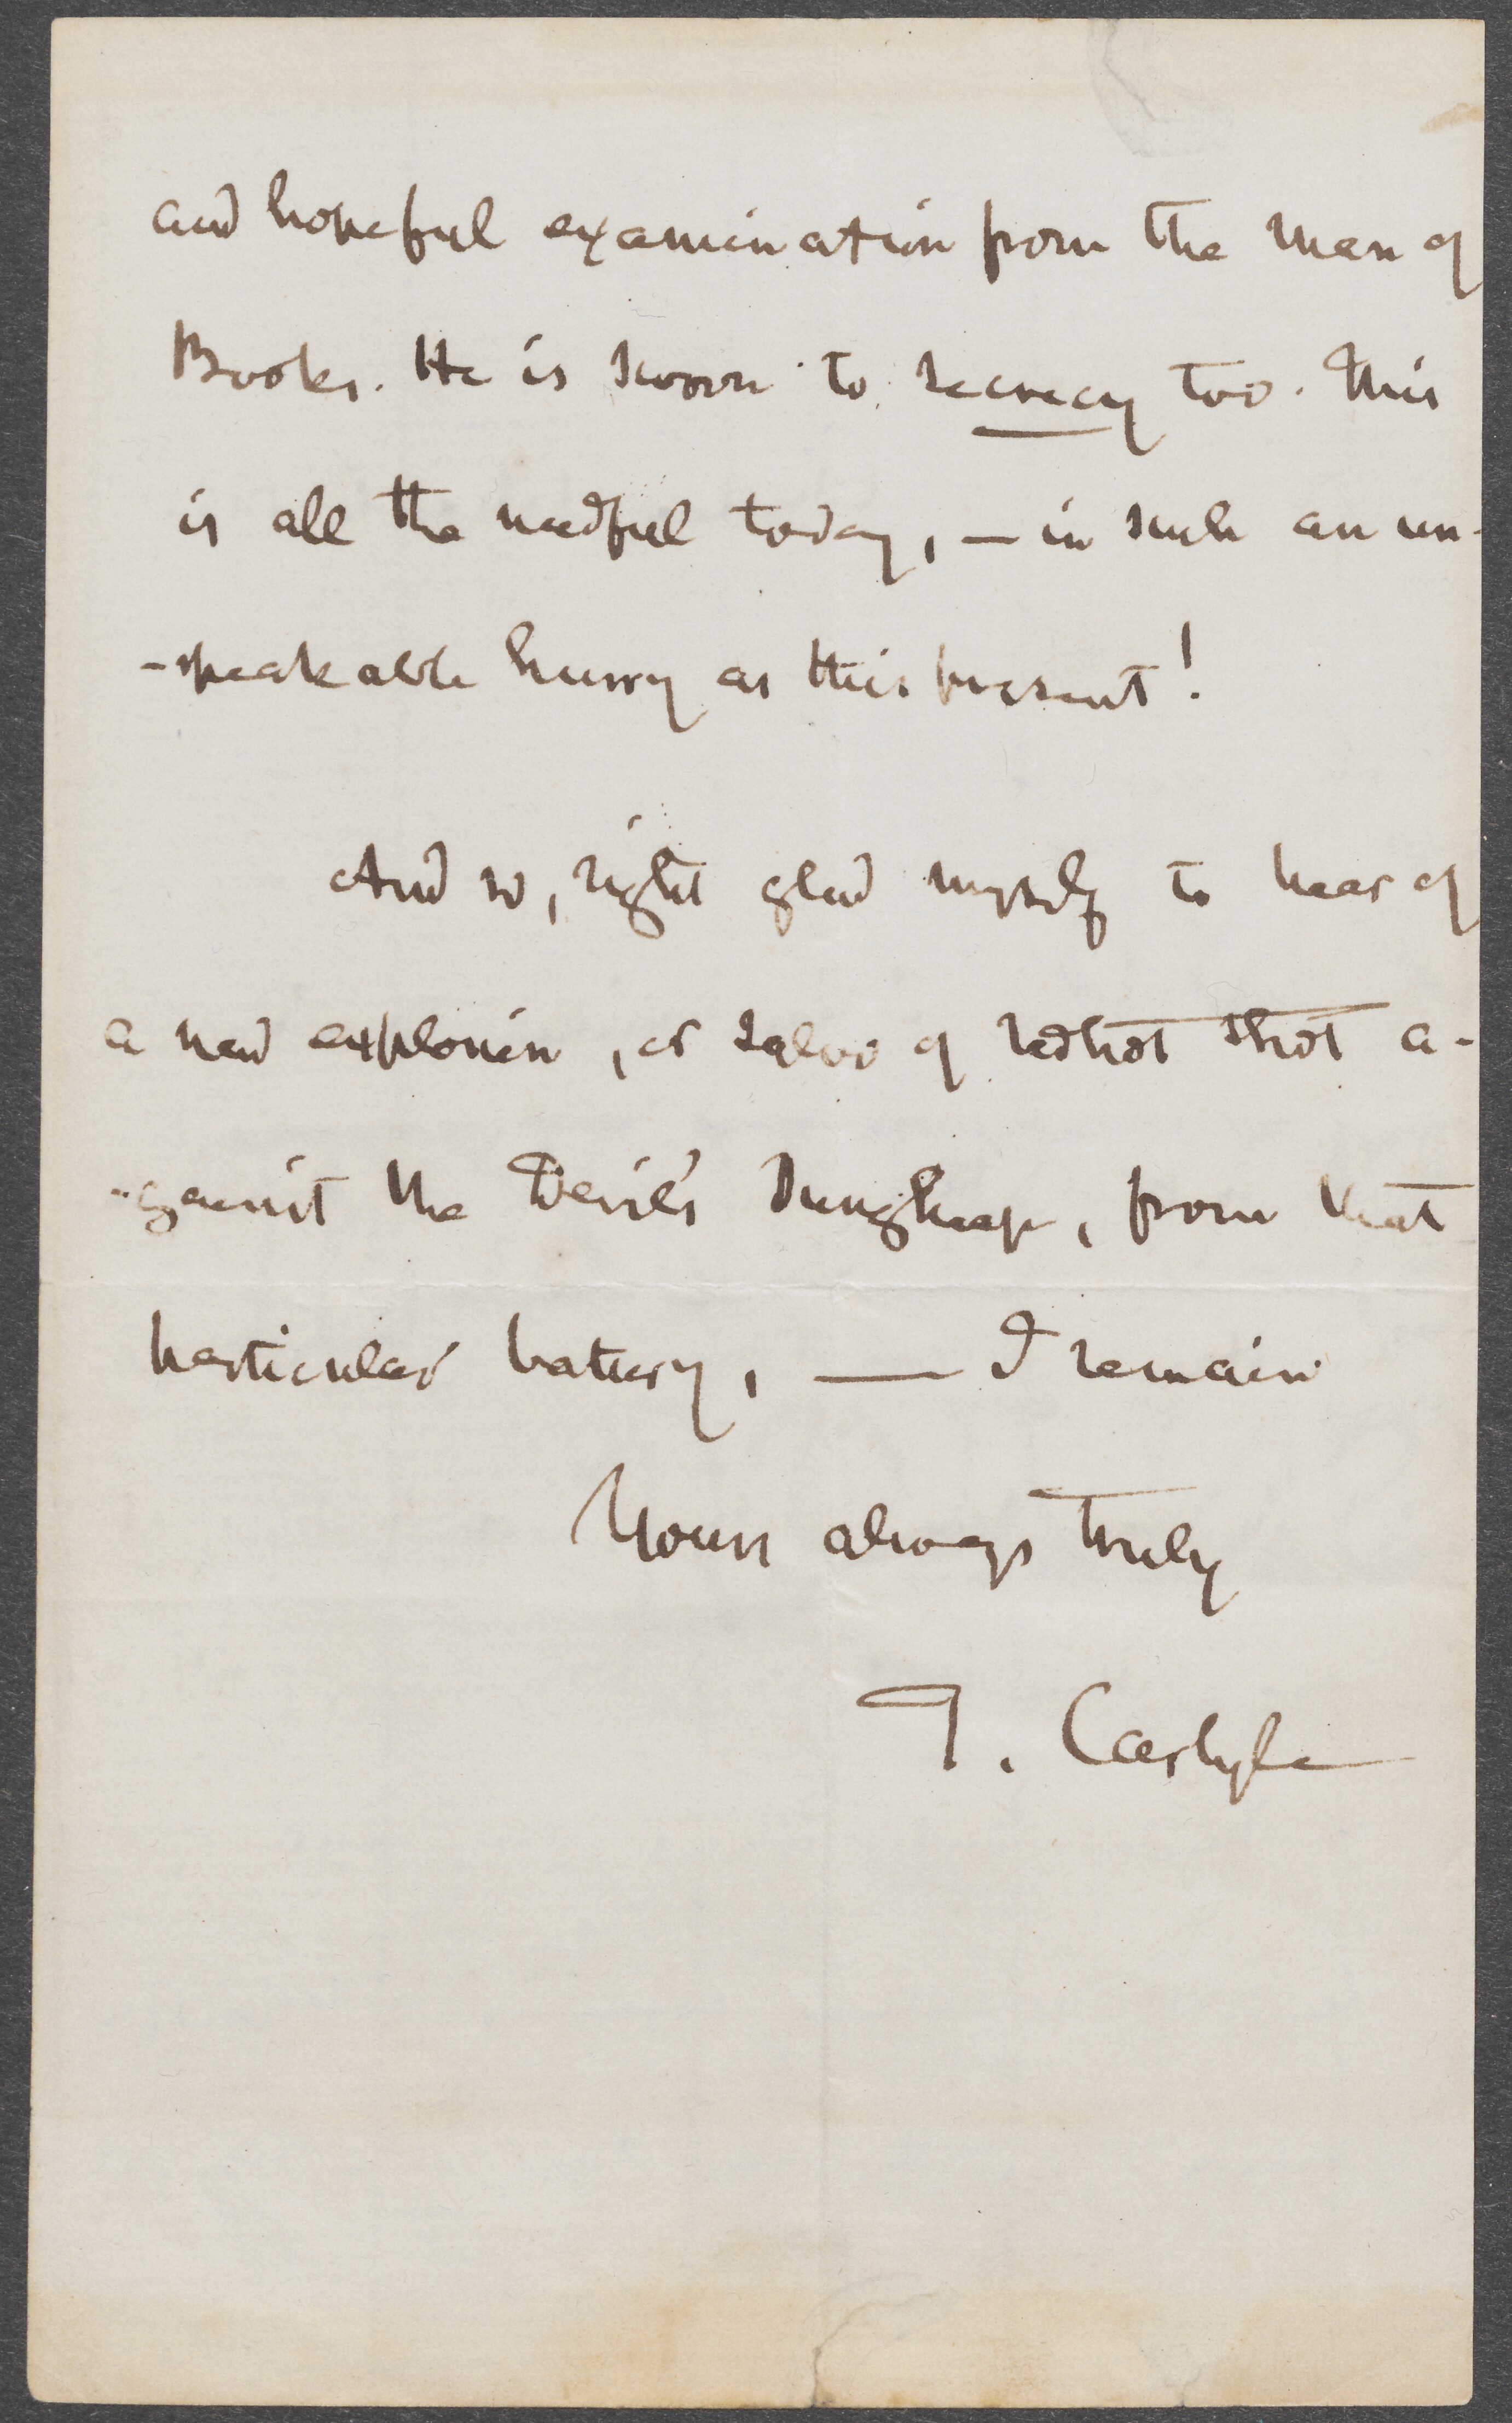 and hopeful examination from the man of
Books. He is sworn to secrecy too. This
is all the needful today, — in such an un-
-speakable hurry as this present!
And so, right glad myself to hear of
a new explosion, or salvo of redhot shot a-
-gainst the Devil's Dungheap, from that
particular battery, — I remain
Yours always truly
T. Carlyle